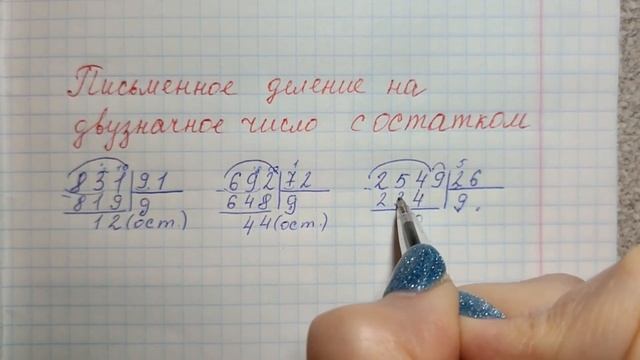 Письменное деление на
двузначное число с остатком
831 91 692 72 2549 26
819 9 648 9 234 9 .
12(ост.) 44(ост.)